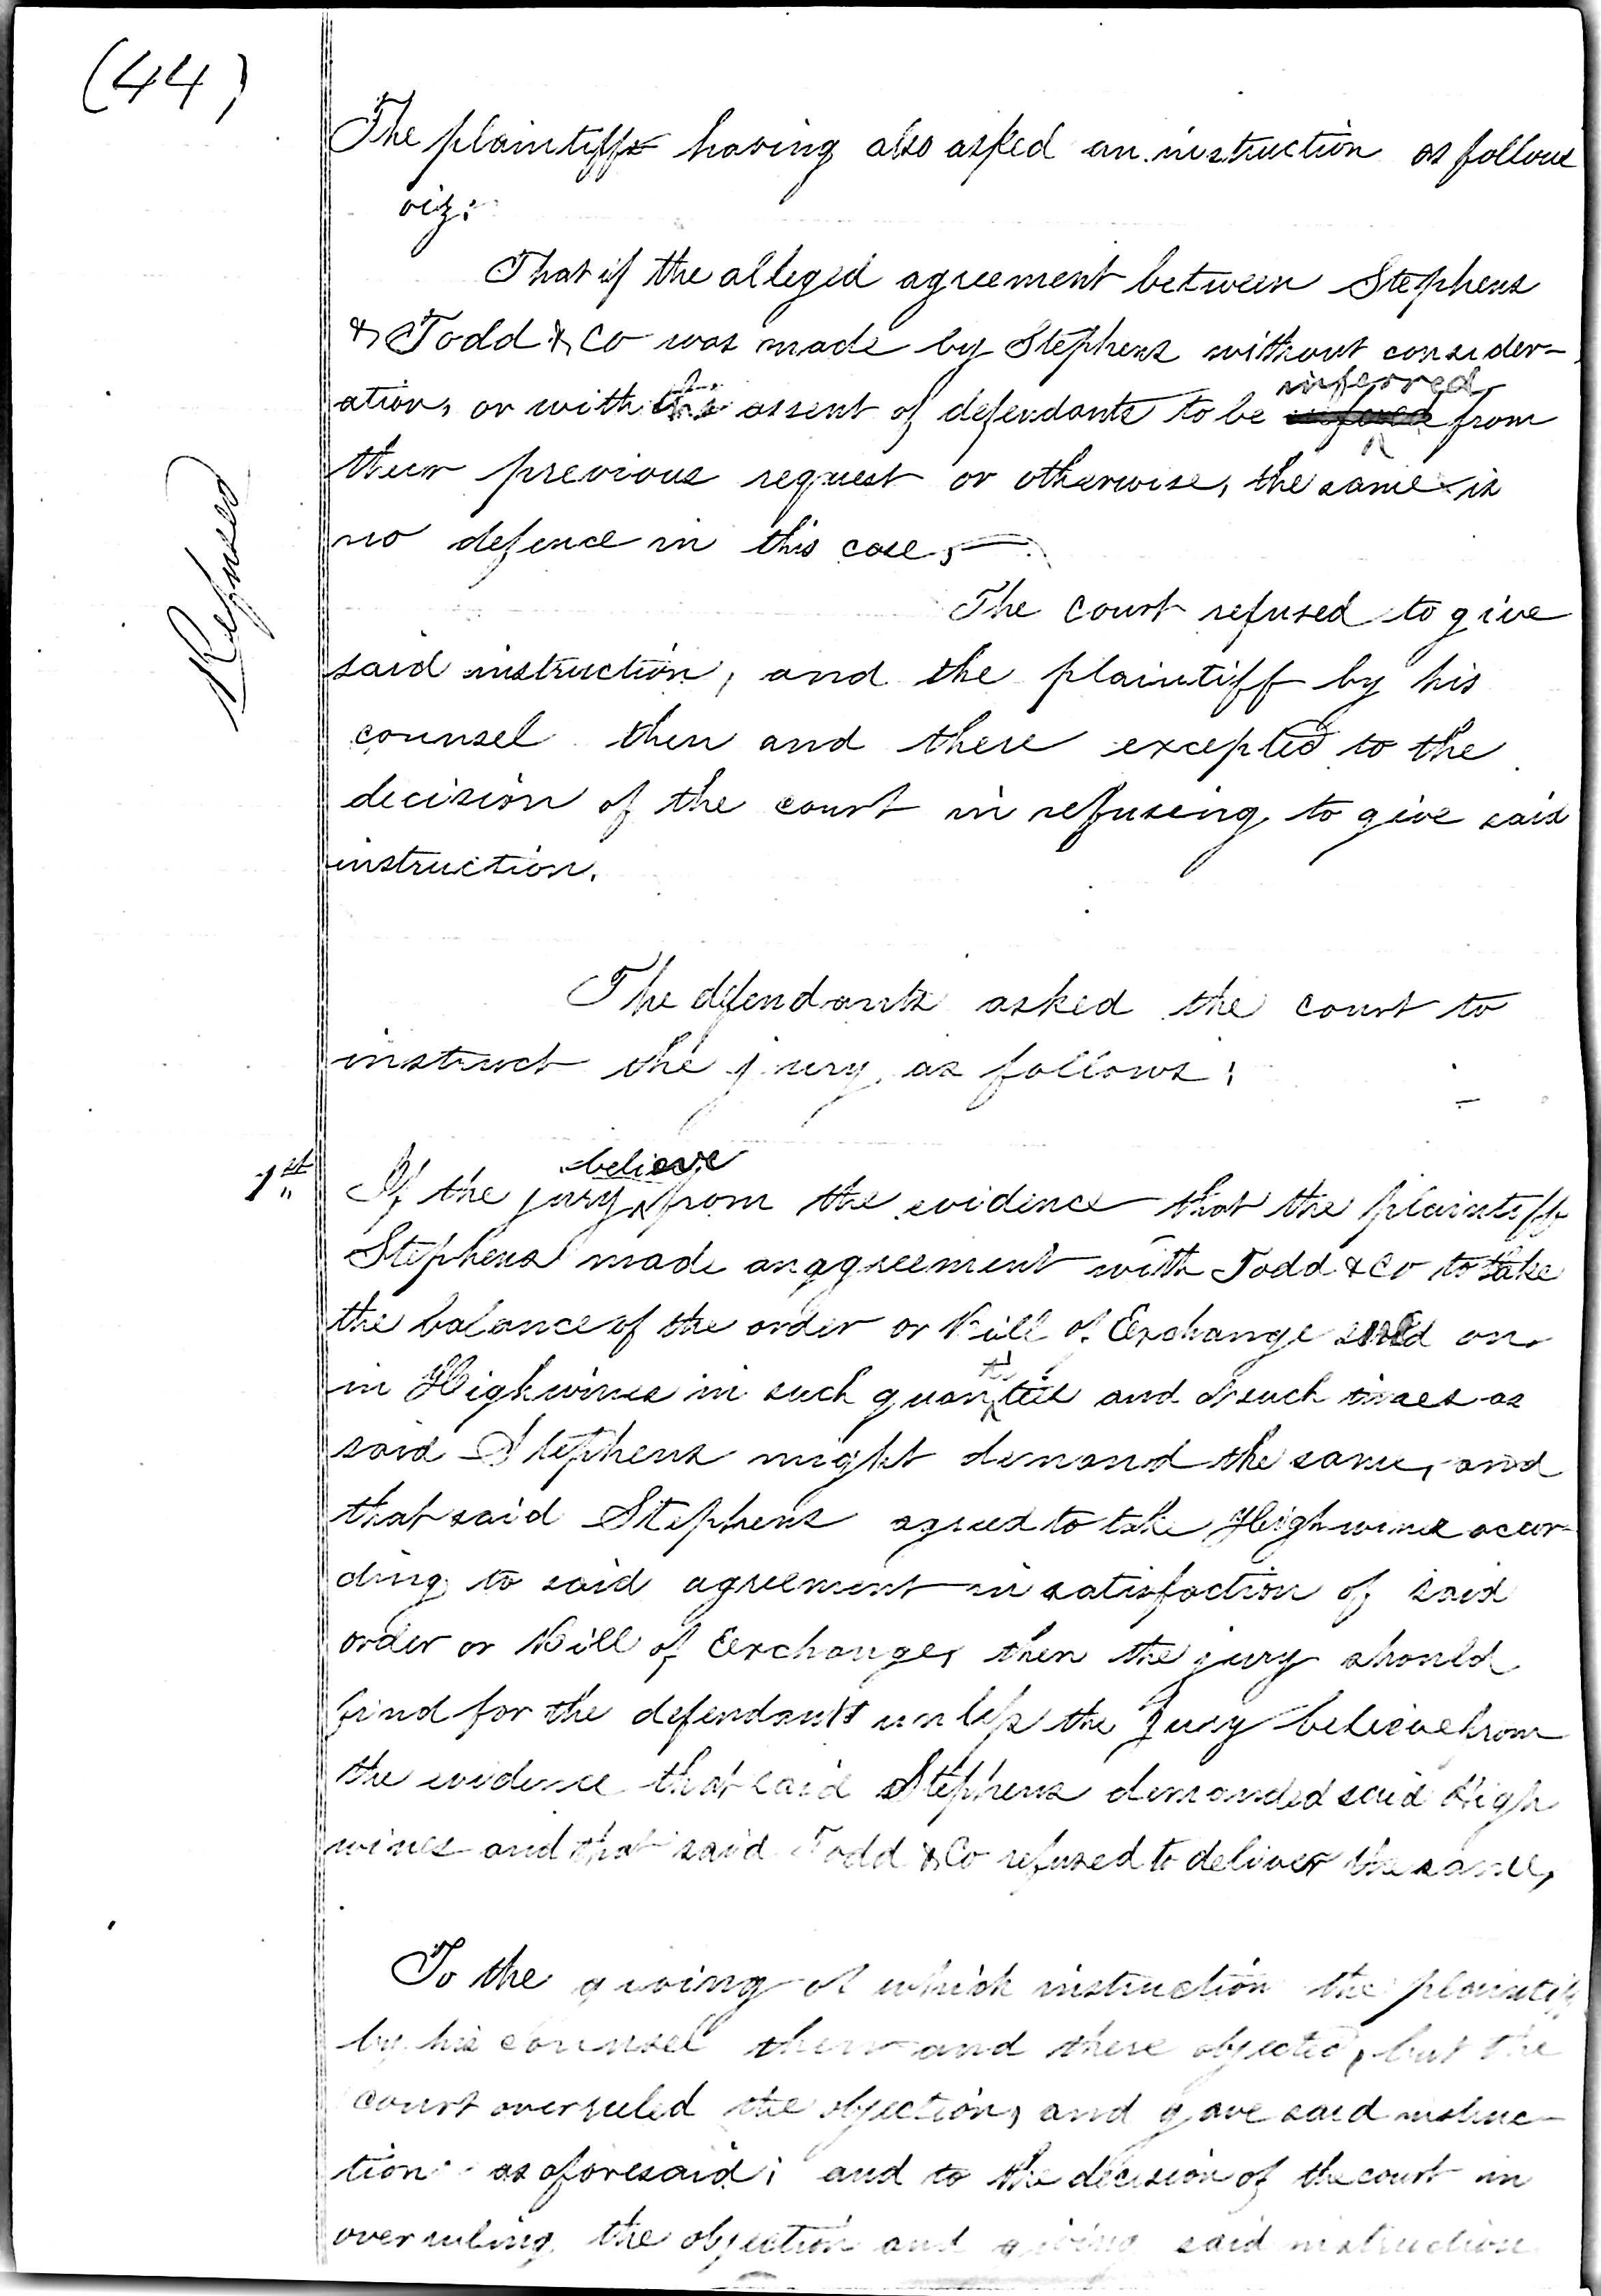 (44)
The plaintiffs having also asked an instruction as follows
viz:
That if the alleged agreement between Stephens
& Todd & Co was made by Stephens without consider-
ation, or with the assent of defendants to be inferred from
their previous request or otherwise, the same is
no defence in this case,
Refused
The Court refused to give
said instruction, and the plaintiff by his
counsel then and there excepted to the
decision of the court in refusing to give said
instruction.
The defendants asked the court to
instruct the jury as follows:
1st If the jury believe from the evidence that the plaintiff
Stephens made an aggreement with Todd & Co to take
the balance of the order or Bill of Exchange sued on
in Highwines in such quantities and at such times as
said Stephens might demand the same, and
that said Stephens agreed to take Highwines accor-
ding to said agreement in satisfaction of said
order or Bill of Exchange, then the jury should
find for the defendants unless the Jury believe from
the evidence that said Stephens demanded said High
wines and that said Todd & Co refused to deliver the same,
To the giving of which instruction the plaintiff
by his counsel then and there objected, but the
court overruled the objection, and gave said instruc-
tion as aforesaid; and to the decision of the court in
overruling the objection and giving said instruction